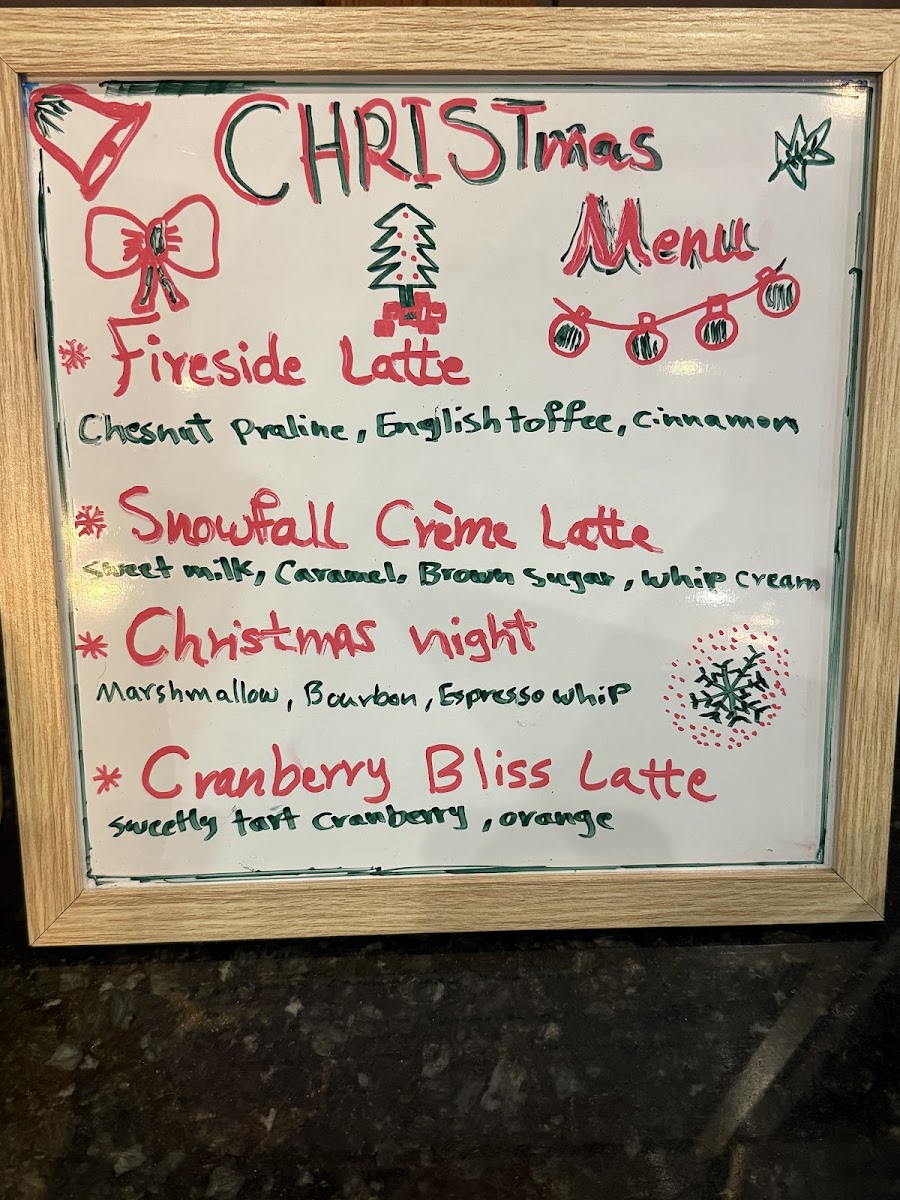 CHRISTmas
Menu
Fireside Latte
Chesnut Praline, English toffee, cinnamon
Snowfall Crème Latte
sweet milk, Caramel, Brown sugar, whip cream
Christmas night
Marshmallow, Bourbon, Espresso whip
Cranberry Bliss Latte
sweetly tart cranberry, orange